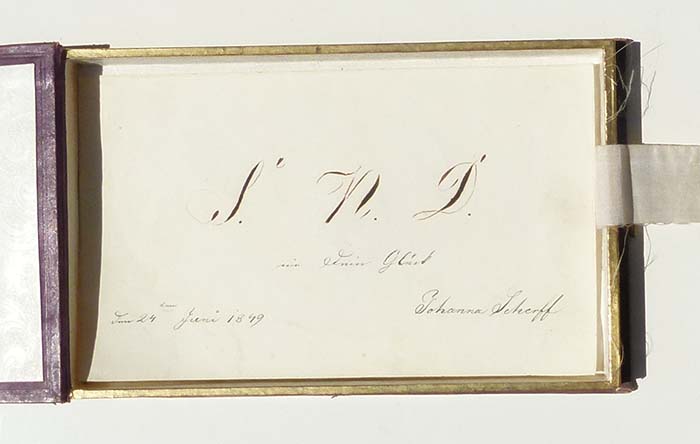 S. N. D.
nie Dein Glück
Den 24ten Juni 1849
Johanna Scherff